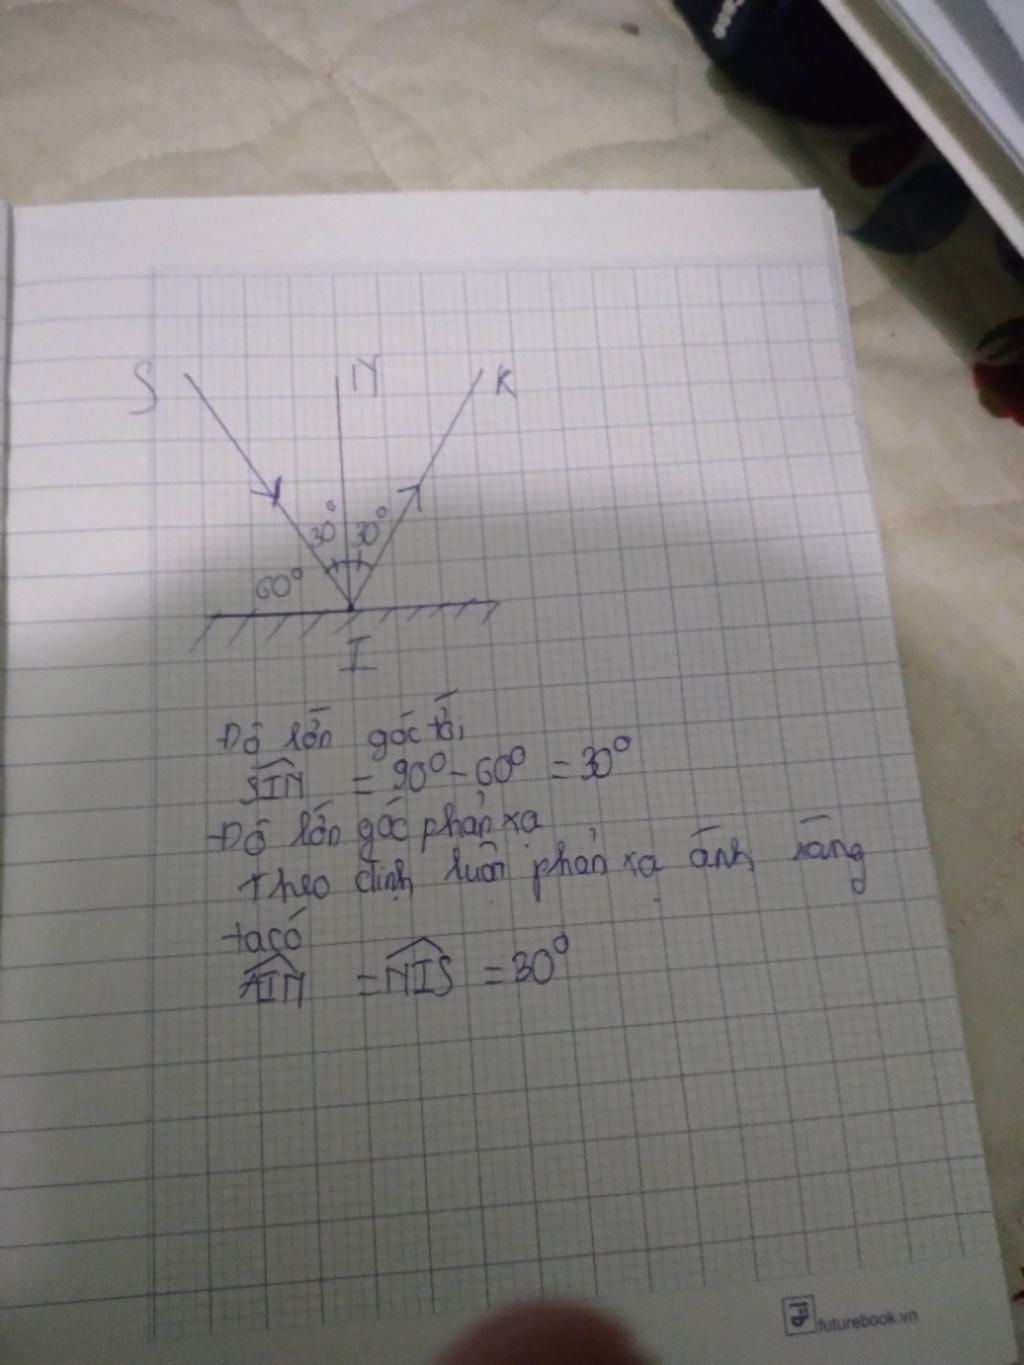 S N K
30° 30°
60°
I
Độ lớn góc tới
SIN = 90° - 60° = 30°
Độ lớn góc phản xạ
Theo định luật phản xạ ánh sáng
ta có
AIN = NIS = 30°
futurebook.vn